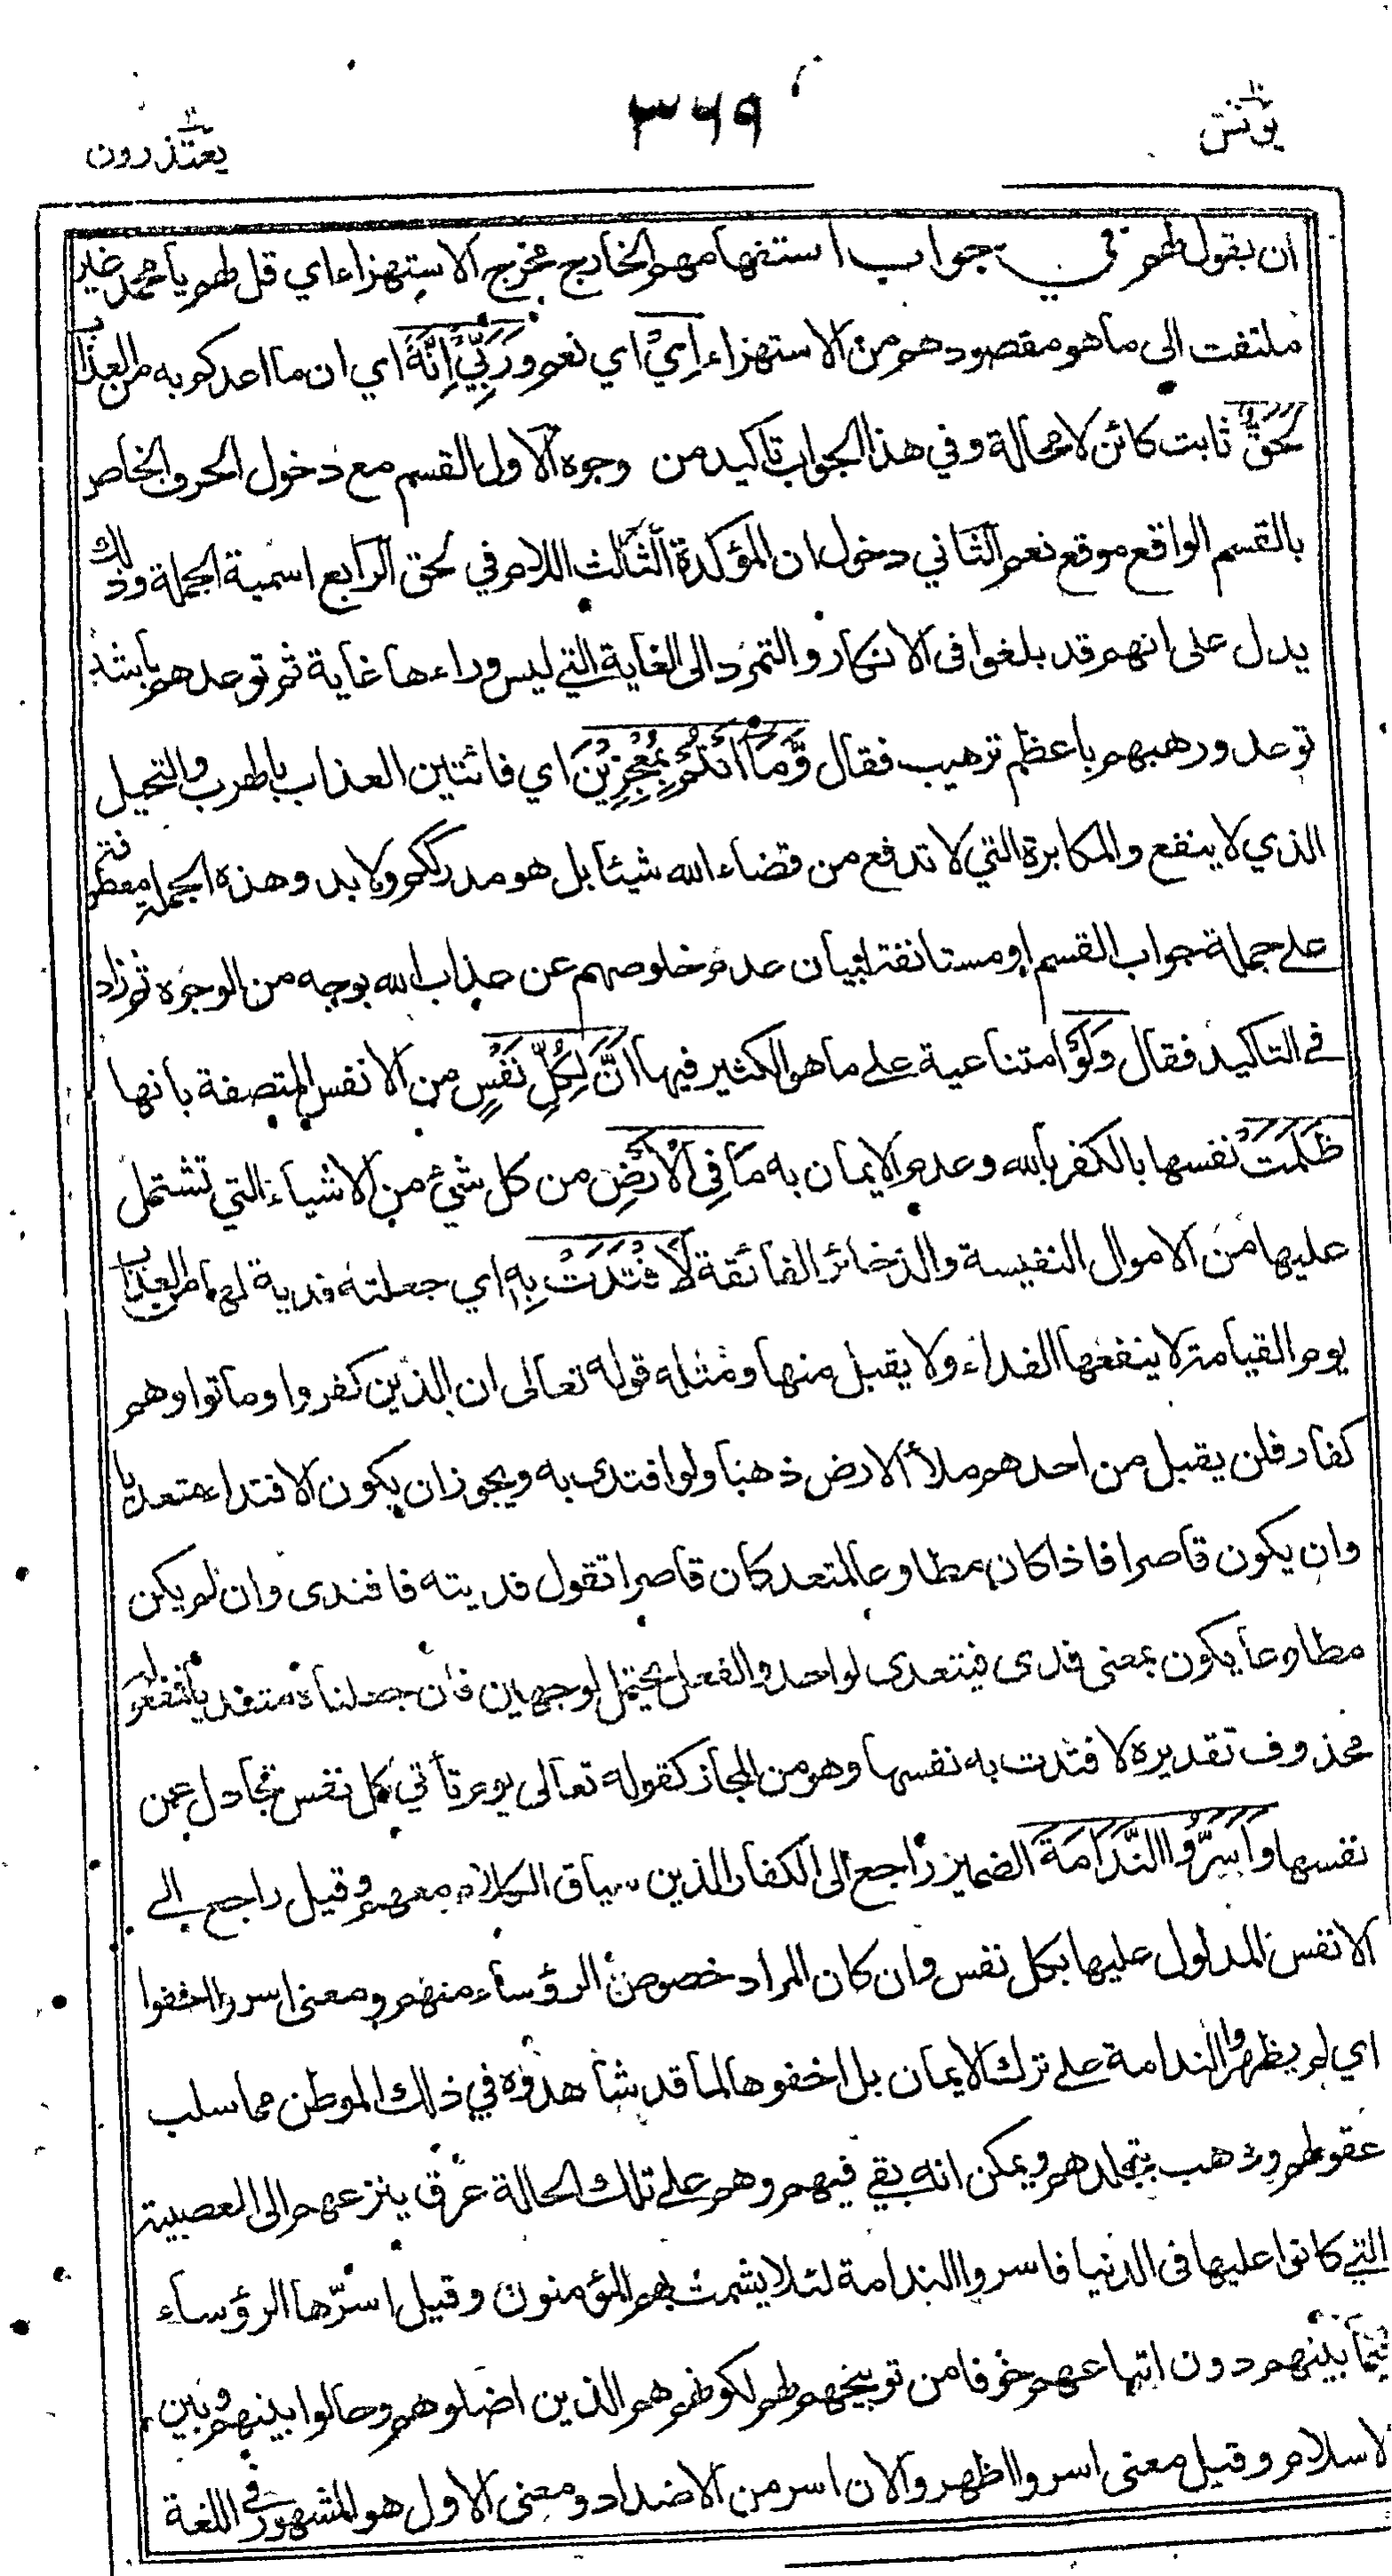 يونس ١٠
٣٦٩
يعتذرون ١١
ان يقول لهم في جواب استفهامهم الخارج مخرج الاستهزاء اي قل لهم يا محمد غير
ملتفت الى ما هو مقصودهم من الاستهزاء اِيْ اي نعم وَرَبِّيْ اِنَّهٗ اي ان ما اعدكم به من العذاب
لَحَقٌّ ثابت كائن لا محالة وفي هذا الجواب تاكيد من وجوه الاول القسم مع دخول الحرف الخاص
بالقسم الواقع موقع نعم الثاني دخول ان المؤكدة الثالث اللام في لحق الرابع اسمية الجملة وذلك
يدل على انهم قد بلغوا فى الانكار والتمرد الى الغاية التي ليس وراءها غاية ثم توعدهم باشد
توعد ورهبهم باعظم ترهيب فقال وَّمَآ اَنْتُمْ بِمُعْجِزِيْنَ اي فائتين العذاب بالهرب والتحيل
الذي لا ينفع والمكابرة التي لا تدفع من قضاء الله شيئا بل هو مدرككم ولا بد وهذه الجملة معطوفة
على جملة جواب القسم او مستانفة لبيان عدم خلوصهم عن عذاب الله بوجه من الوجوه ثم زاد
في التاكيد فقال وَلَوْ امتناعية على ما هو الكثير فيها اَنَّ لِكُلِّ نَفْسٍ من الانفس المتصفة بانها
ظَلَمَتْ نفسها بالكفر بالله وعدم الايمان به مَا فِى الْاَرْضِ من كل شيئ من الاشياء التي تشتمل
عليها من الاموال النفيسة والذخائر الفائقة لَافْتَدَتْ بِهٖ اي جعلته فدية لها من العذاب
يوم القيامة لا ينفعها الفداء ولا يقبل منها ومثله قوله تعالى ان الذين كفروا وماتوا وهم
كفار فلن يقبل من احدهم ملأ الارض ذهبا ولو افتدى به ويجوز ان يكون الافتداء متعديا
وان يكون قاصرا فاذا كان مطاوعا لمتعد كان قاصرا تقول فديته فافتدى وان لم يكن
مطاوعا يكون بمعنى فدى فيتعدى لواحد والفعل يحتمل لوجهين فان جعلناه متعديا فمفعوله
محذوف تقديره لافتدت به نفسها وهو من المجاز كقوله تعالى يوم تأتي كل نفس تجادل عن
نفسها وَاَسَرُّوا النَّدَامَةَ الضمير راجع الى الكفار الذين سياق الكلام معهم وقيل راجع الى
الانفس المدلول عليها بكل نفس وان كان المراد خصوص الرؤساء منهم ومعنى اسروا اخفوا
اي لم يظهروا الندامة على ترك الايمان بل اخفوها لما قد شاهدوه في ذلك الموطن مما سلب
عقولهم وذهب بتجلدهم ويمكن انه بقي فيهم وهم على تلك الحالة عرق ينزعهم الى العصبية
التي كانوا عليها فى الدنيا فاسروا الندامة لئلا يشمت بهم المؤمنون وقيل اسرّها الرؤساء
فيما بينهم دون اتباعهم خوفا من توبيخهم لهم لكونهم هم الذين اضلوهم وحالوا بينهم وبين
لاسلام وقيل معنى اسروا اظهروا لان اسر من الاضداد ومعنى الاول هو المشهور في اللغة